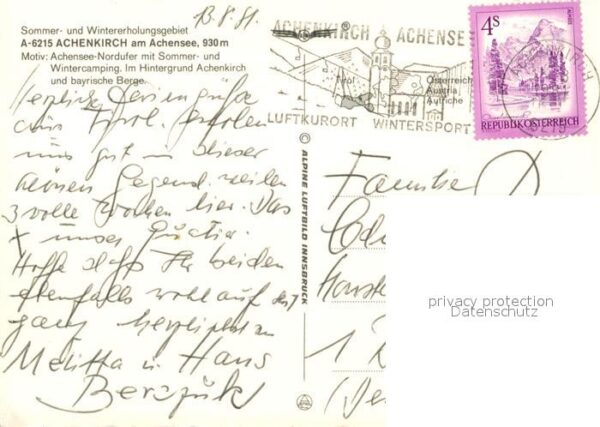 13.8.81
Sommer- und Wintererholungsgebiet
A-6215 ACHENKIRCH am Achensee, 930 m
Motiv: Achensee-Nordufer mit Sommer- und
Wintercamping. Im Hintergrund Achenkirch
und bayrische Berge.
Herzliche Feriengrüße
aus Tirol.
uns gut in dieser
schönen Gegend, weilen
3 volle Wochen hier. Das
x unser
Hoffe daß Ihr beiden
ebenfalls wohlauf
ganz herzlichst
Melitta u. Hans
ACHENKIRCH ACHENSEE
Tirol
Österreich
Austria
Autriche
LUFTKURORT WINTERSPORT
4S
REPUBLIK ÖSTERREICH
6215
ALPINE LUFTBILD INNSBRUCK
Familie D
1
privacy protection
Datenschutz